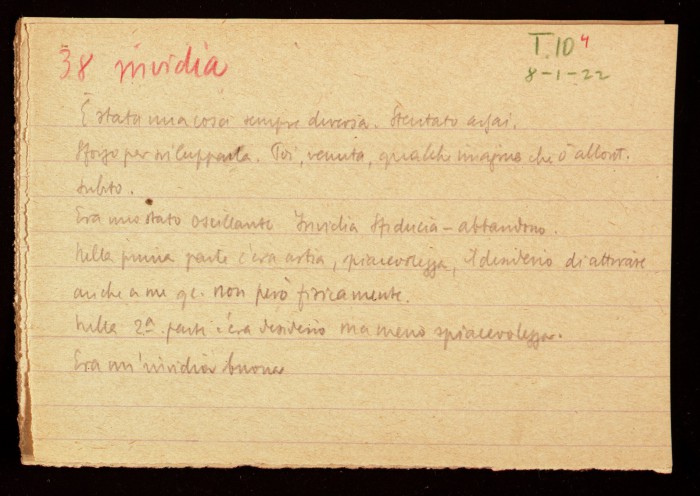 38 invidia
T.10 4
8-1-22
È stata una cosa sempre diversa. Stentato assai.
Sforzo per svilupparla. Poi, venuta, qualche imagine che ò allont.
subito.
Era uno stato oscillante Invidia Sfiducia - abbandono.
Nella prima parte c'era astia, spiacevolezza, il desiderio di attirare
anche a me qc. non però fisicamente.
Nella 2ª parte c'era desiderio ma meno spiacevolezza.
Era un'invidia buona